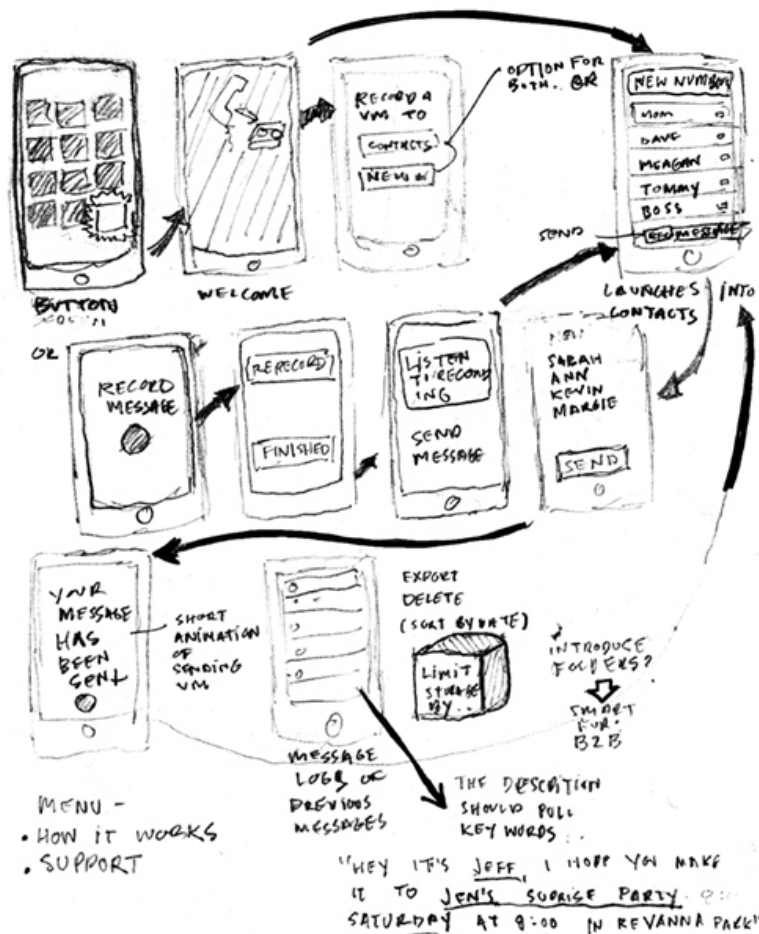 BUTTON
WELCOME
RECORD A
VM TO
CONTACTS
NEW #
OPTION FOR
BOTH.. OR
NEW NUMBER
MOM
DAVE
MEAGAN
TOMMY
BOSS
MESSAGE
SEND
LAUNCHES INTO
CONTACTS
OR
RECORD
MESSAGE
RERECORD
FINISHED
LISTEN
TO RECORD
ING
SEND
MESSAGE
SARAH
ANN
KEVIN
MARGIE
SEND
YOUR
MESSAGE
HAS
BEEN
SENT
SHORT
ANIMATION
OF
SENDING
VM
MESSAGE
LOGS OF
PREVIOUS
MESSAGES
EXPORT
DELETE
(SORT BY DATE)
LIMIT
STORAGE
BY..
INTRODUCE
FOLDERS?
SMART
FOR
B2B
MENU -
• HOW IT WORKS
• SUPPORT
THE DESCRITION
SHOULD PULL
KEY WORDS..
"HEY IT'S JEFF, I HOPE YOU MAKE
IT TO JEN'S SUPRISE PARTY.
SATURDAY AT 8:00 IN REVANNA PARK"